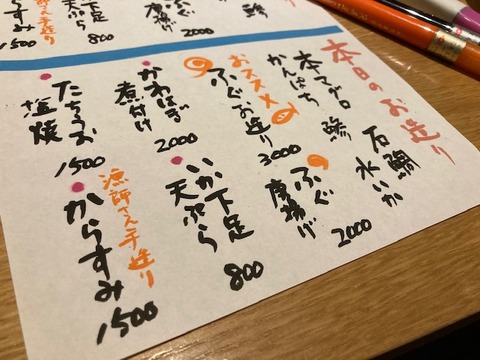 本日のお造り
石鯛
水いか
本マグロ
鯵
かんぱち
おススメ
ふぐお造り
3000
ふぐ
唐揚げ
2000
かわはぎ
煮付け
2000
いか下足
天ぷら
800
たちうお
塩焼
1500
漁師さん手造り
からすみ
1500
鯵
ふぐ
唐揚げ
2000
下足
800
漁師さん手造り
からすみ
1500